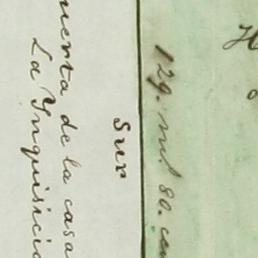 129. mil 80. cen
Sur
uenta de la casa
La Ynquisicio
H